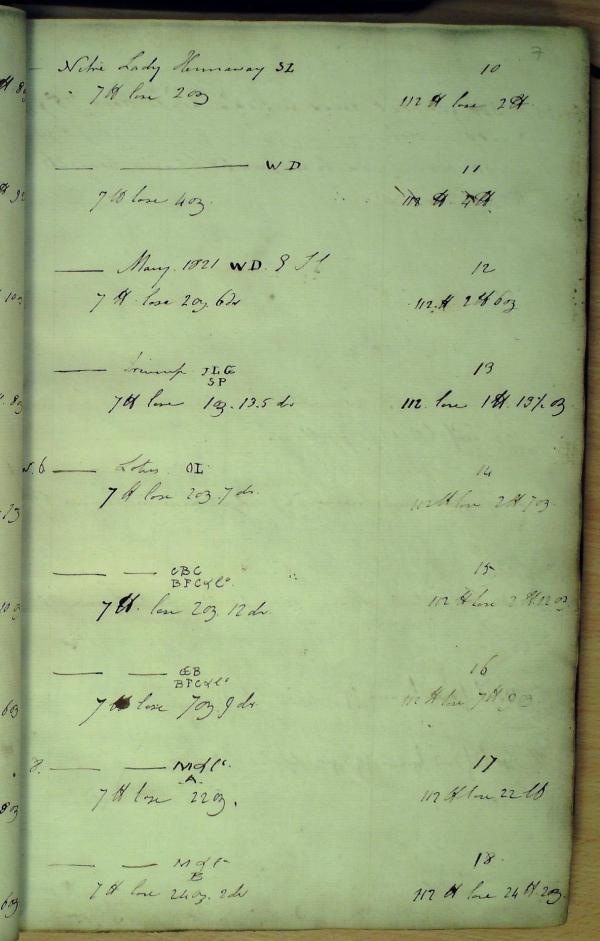 7
Nitre Lady Hennaway SL 10
7 lb lose 2 oz 112 lb lose 2 lb
— — WD 11
7 lb lose 4 oz. 112 lb 4 lb
— Mary 1821 WD. & 12
7 lb lose 2 oz. 6 dr 112 lb 2 lb 6 oz
— Triumph JLG 13
SP
7 lb lose 1 oz. 13.5 dr 112 lose 1 lb 13½ oz
— Lotus OL 14
7 lb lose 2 oz. 7 dr. 112 lb lose 2 lb 7 oz.
— — CBC 15
BPC & Co.
7 lb. lose 2 oz. 12 dr. 112 lb lose 2 lb 12 oz
— — GB 16
BPC & Co
7 lb lose 7 oz. 9 dr 112 lb lose 7 lb 9 oz
8. — — M & Co. 17
A.
7 lb lose 22 oz. 112 lb lose 22 lb
— — M & Co 18
B
7 lb lose 24 oz. 2 dr 112 lb lose 24 lb 2 oz.